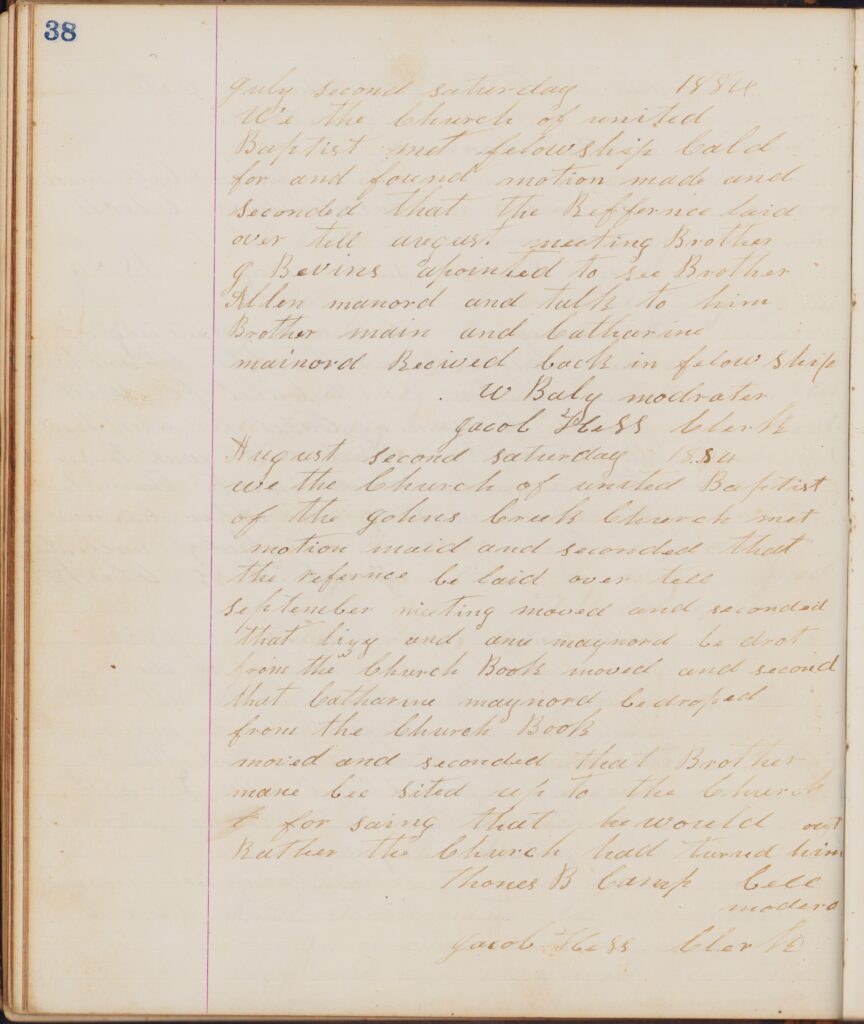 38
July second saturday 1884
We the Church of united
Baptist met felowship Cald
for and found motion made and
seconded that the Reffernce laid
over tell august meeting Brother
g Bevins apointed to see Brother
Allen manord and talk to him
Brother main and Catharine
mainord Recived back in felow ship
W Baly modrater
Jacob Hess Clerk
August second saturday 1884
we the Church of united Baptist
of the Johns Creek Church met
motion maid and seconded that
the refernce be laid over tell
september meeting moved and seconded
that lizy and ann maynord be drot
from the Church Book moved and second
that Catharine maynord be droped
from the Church Book
moved and seconded that Brother
mane bee sited up to the Church
for saing that he would
Rather the Church had turnd him out
Thones B Camp bell
modera
Jacob Hess Clerk